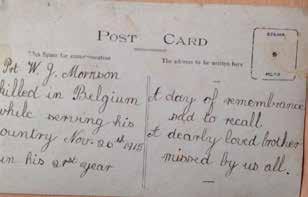 POST CARD
This Space for communication
The address to be written here
STAMP
HERE
Pvt W. J. Morrison
killed in Belgium
while serving his
country Nov. 20th 1915
in his 21st year
A day of remembrance
sad to recall
A dearly loved brother
missed by us all.